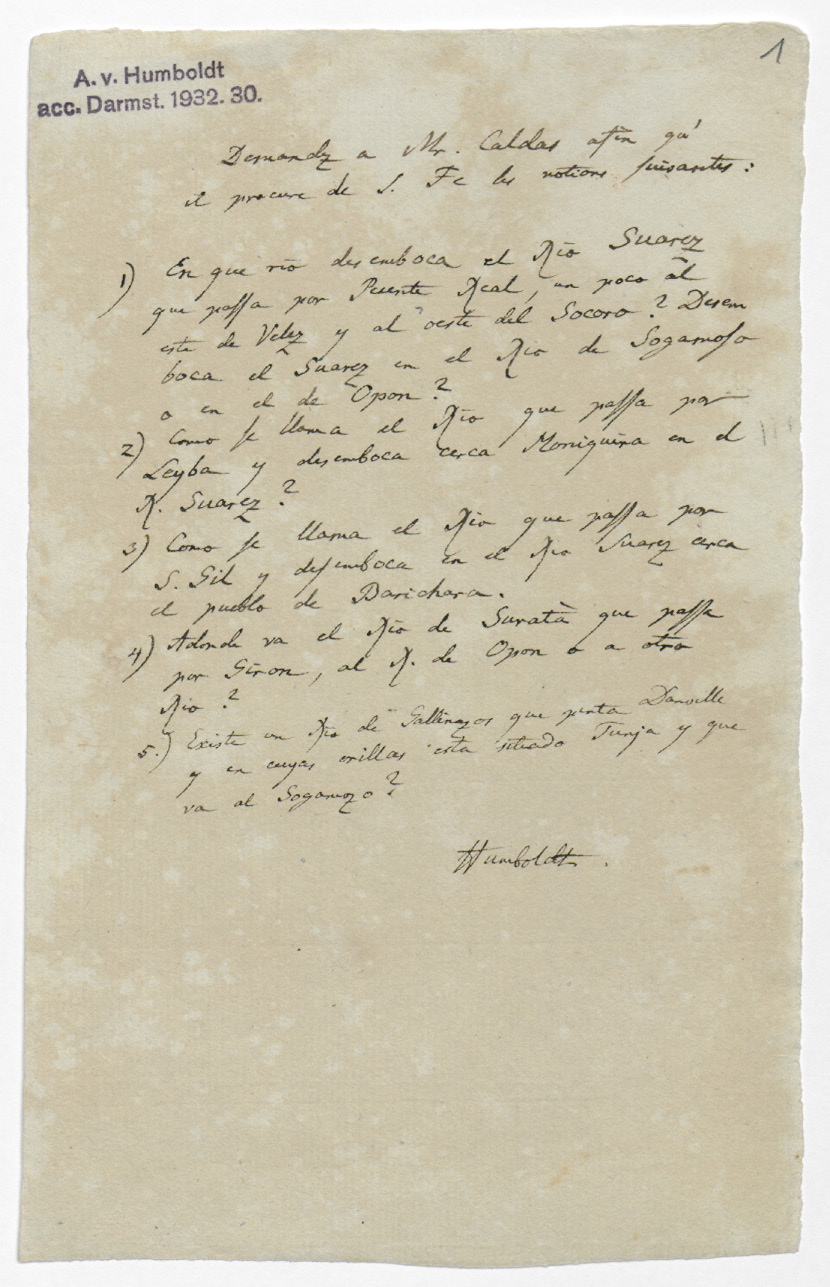 1
A. v. Humboldt
acc. Darmst. 1932. 30.
Demandez a Mr. Caldas afin qu'
il procure de S. Fe les notions suivantes:
1) En que rio desemboca el Rio Suarez
que passa por Puente Real, un poco àl
este de Velez y al oeste del Socoro? Desem
boca el Suarez en el Rio de Sogamoso
o en el de Opon?
2) Como se llama el Rio que passa por
Leyba y desemboca cerca Moniquira en el
R. Suarez?
3) Como se llama el Rio que passa por
S. Gil y desemboca en el Rio Suarez cerca
el pueblo de Barichara.
4) Adonde va el Rio de Suratà que passa
por Giron, al R. de Opon o a otro
Rio?
5.) Existe un Rio de Gallinazos que pinta Danville
y en cuyas orillas esta situado Tunja y que
va al Sogamozo?
Humboldt.